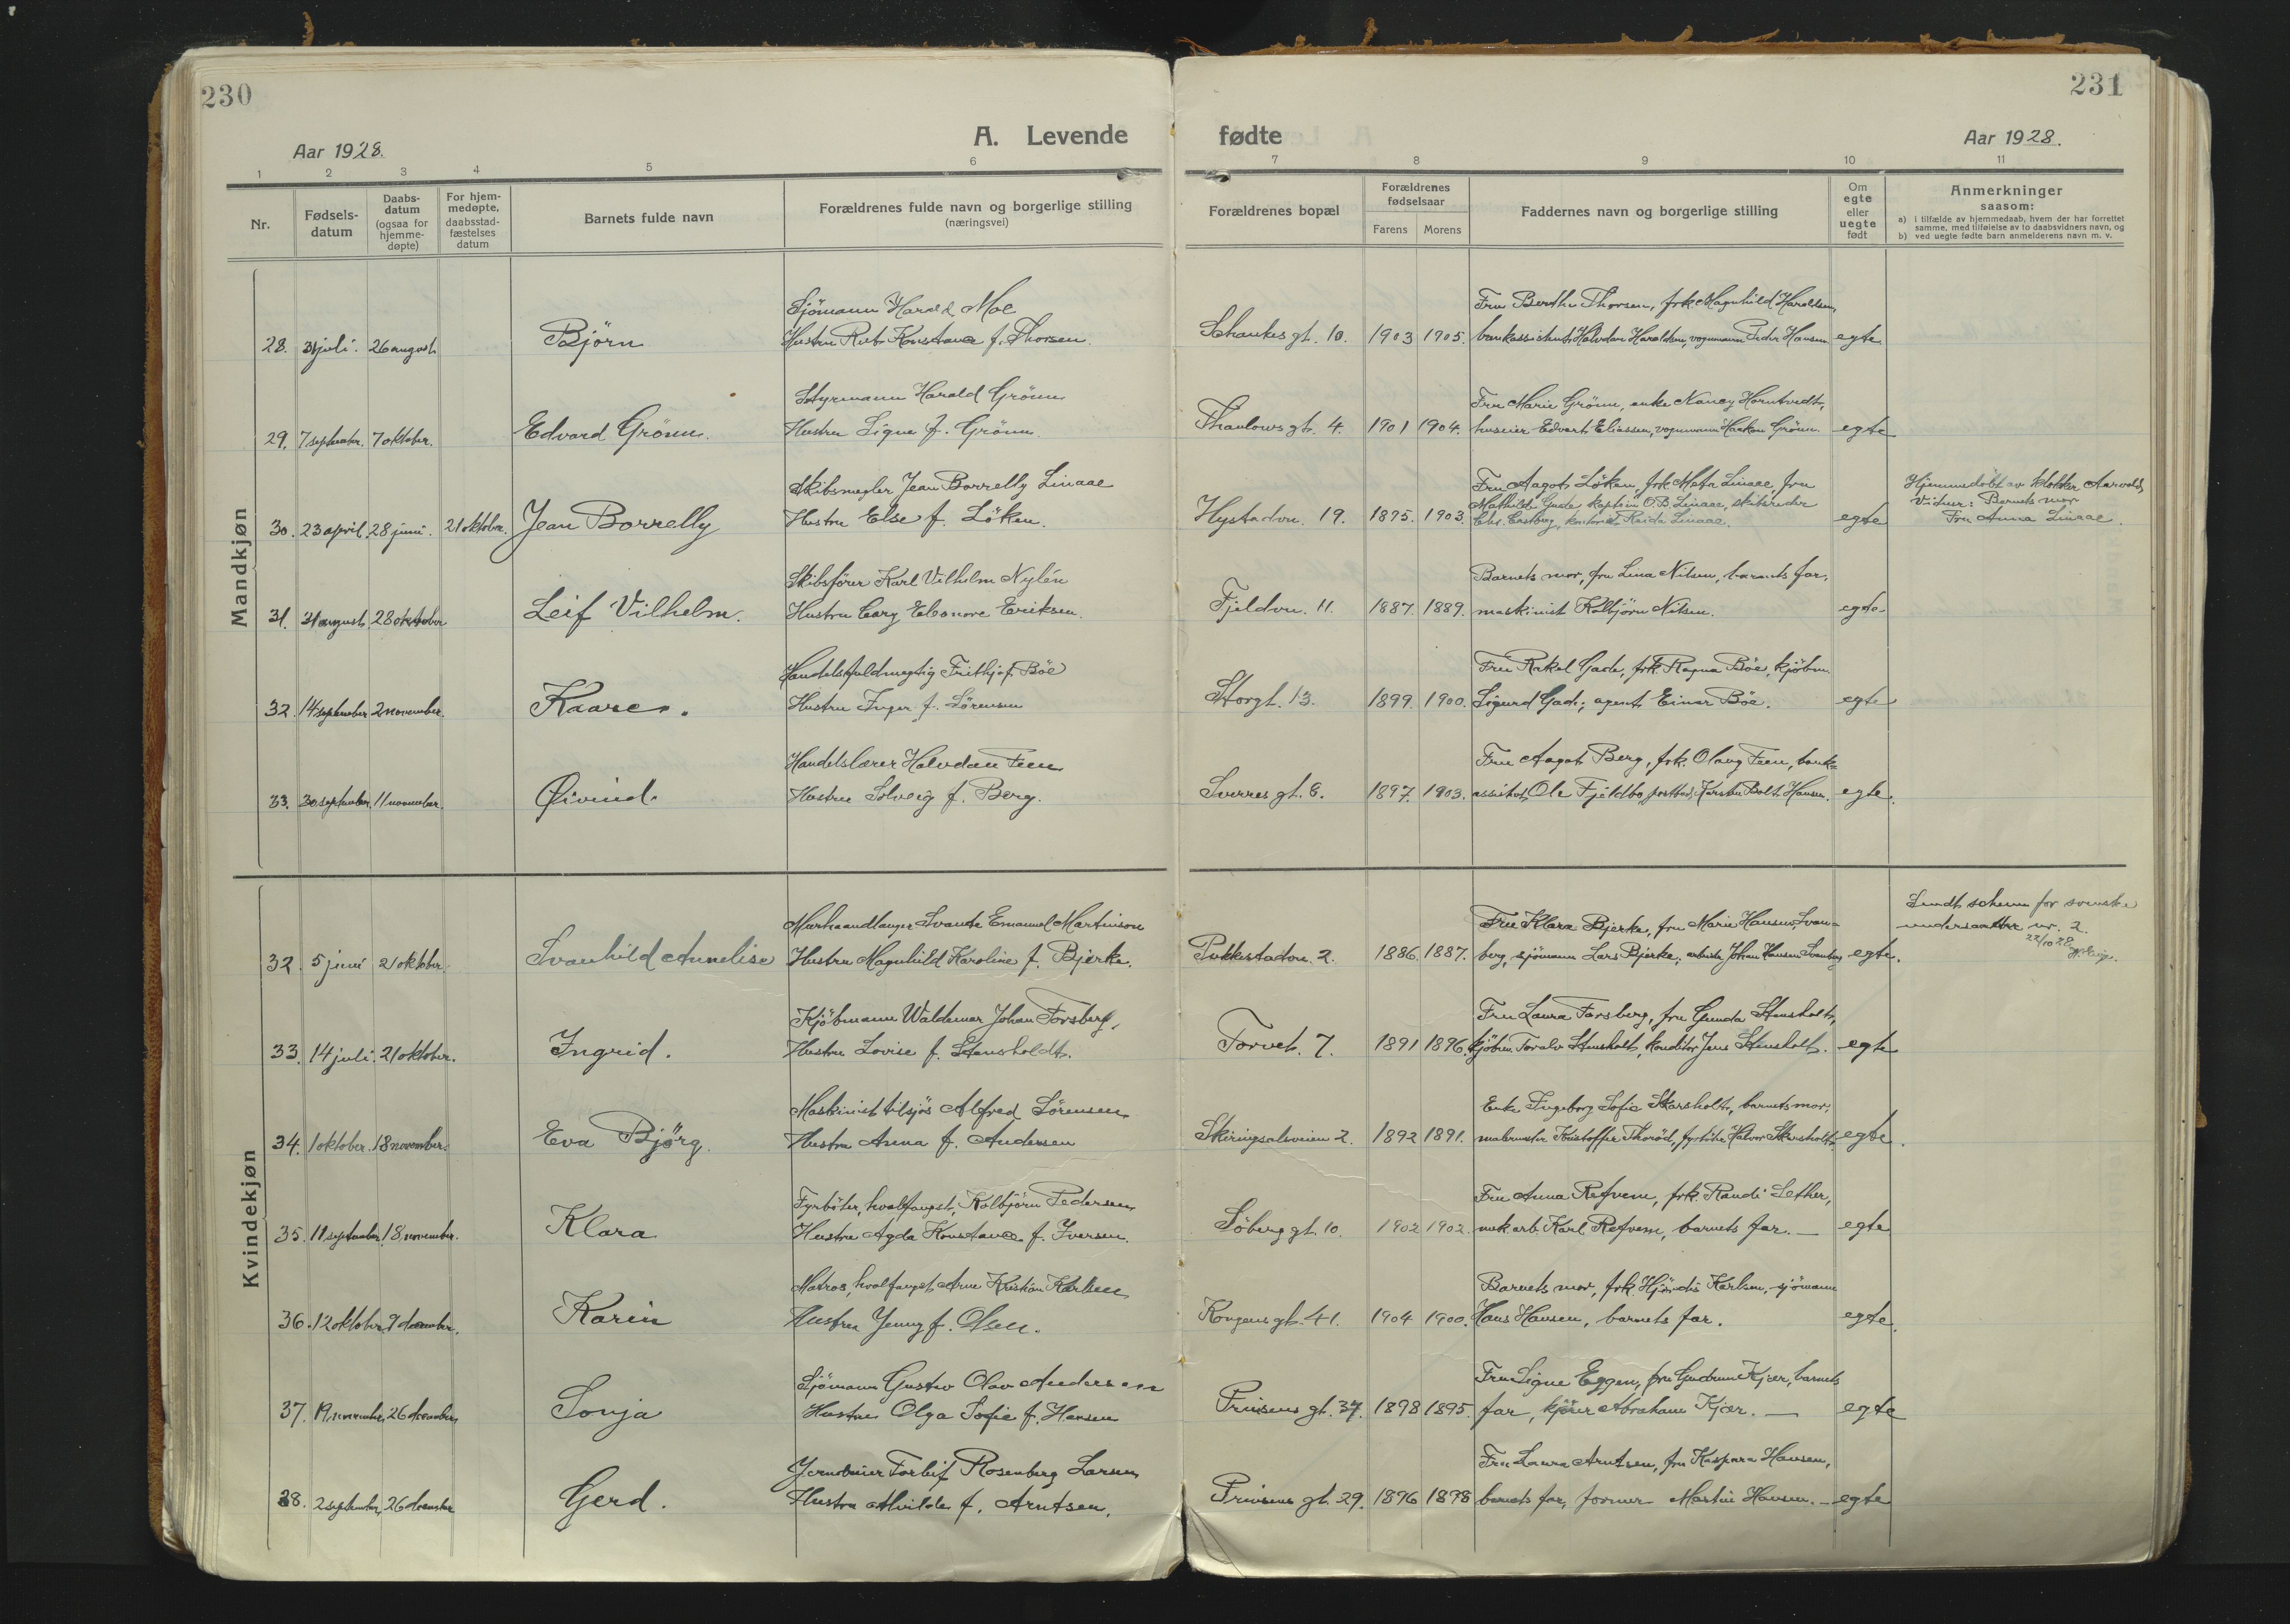 230
231
Aar 1928.
A. Levende
fødte
Aar 1928.
1 2 3 4 5 6 7 8 9 10 11
Nr.
Fødsels-
datum
Daabs-
datum
(ogsaa for
hjemme-
døpte)
For hjem-
medøpte,
daabsstad-
fæstelses
datum
Barnets fulde navn
Forældrenes fulde navn og borgerlige stilling
(næringsvei)
Forældrenes bopæl
Forældrenes
fødselsaar
Farens Morens
Faddernes navn og borgerlige stilling
Om
egte
eller
uegte
født
Anmerkninger
saasom:
a) i tilfælde av hjemmedaab, hvem der har forrettet
samme, med tilføielse av to daabsvidners navn, og
b) ved uegte fødte barn anmelderens navn m. v.
Mandkjøn
Sjömann Harald Moe
Fru Berthe Thorsen, frk. Magnhild Haraldsen,
28. 31 juli. 26 august Björn Hustru Rut Konstance f. Thorsen. Schankes gt. 10. 1903 1905. bankassistent Halvdan Haraldsen, vognmann Peder Hansen egte
Styrmann Harald Grönn
Fru Marie Grönn, enke Nancy Horntvedt,
29. 7 september. 7 oktober. Edvard Grönn. Hustru Signe f. Grönn. Thaulows gt. 4. 1901 1904. huseier Edvart Eliassen, vognmann Haakon Grönn. egte
Skibsmegler Jean Borrelly Linaae
Fru Aagot Löken, frk. Meta Linaae, fru
Mathilde Gude, kaptein O.B. Linaae, skibsreder
Hjemmedöbt av klokker Aarvold,
Vidner: Barnets mor
30. 23 april. 28 juni. 21 oktober. Jean Borrelly Hustru Else f. Löken. Hystadvn. 19. 1895. 1903. Chr. Linaae. egte Fru Anna Linaae.
Skibsförer Karl Vilhelm Nylén
Barnets mor, fru Lina Nilsen, barnets far,
31. 31 august. 28 oktober Leif Vilhelm. Hustru Cary Eleonore Eriksen. Fjeldvn. 11. 1887. 1889. maskinist Kolbjörn Nilsen. egte
Handelsfuldmegtig Frithjof Böe
Fru Rakel Gade, frk. Ragna Böe, kjöbm.
32. 14 september 2 november. Kaare. Hustru Inger f. Sörensen Storgt. 13. 1899. 1900. Sigurd Gade, agent Einar Böe. egte
Handelslærer Halvdan Feen
Fru Aagot Berg, frk. Olaug Feen, bank=
33. 30 september. 11 november. Øivind. Hustru Solveig f. Berg. Sverres gt. 6. 1897. 1903. assistent Ole Fjeldbo, Karsten Bolt Hansen. egte.
Kvindekjøn
Murhaandlanger Svante Emanuel Martinson
Fru Klara Bjerke, fru Marie Hansen Svan=
Sendt schema for svenske
undersaatter nr. 2.
22/10 28
32. 5 juni 21 oktober. Svanhild Annelise Hustru Magnhild Karoline f. Bjerke. Pukkestadvn. 2. 1886. 1887. berg, sjömann Lars Bjerke, arbeider Johan Hansen Svanberg egte.
Kjöbmann Waldemar Johan Forsberg,
Fru Laura Forsberg, fru Gunda Stensholt,
33. 14 juli. 21 oktober. Ingrid. Hustru Lovise f. Stensholdt. Torvet. 7. 1891 1896. kjöbm. Toralv Stensholt, konditor Jens Stensholt. egte
Maskinist tilsjös Alfred Sörensen
Enke Ingeborg Sofie Skarsholt, barnets mor,
34. 1 oktober. 18 november. Eva Björg. Hustru Anna f. Andersen Skiringsalsveien 2. 1892 1891. malermester Kristoffer Thoröd, fyrböter Halvor Skarsholt. egte.
Fyrböter, hvalfangst, Kolbjörn Pedersen
Fru Anna Refvem, frk. Randi Sether,
35. 11 september. 18 november. Klara Hustru Agda Konstance f. Iversen. Söberg gt. 10. 1902 1902. mek. arb. Karl Refvem, barnets far. — egte
Matros, hvalfangst Arne Kristian Karlsen
Barnets mor, frk. Hjördis Karlsen, sjömann
36. 12 oktober 9 december. Karin Hustru Jenny f. Olsen. Kongens gt. 41. 1904 1900. Hans Hansen, barnets far. egte.
Sjömann Gustav Olav Andersen
Fru Signe Eggen, fru Gudrun Kjær, barnets
37. 19 november. 26 december Sonja Hustru Olga Sofie f. Hansen Prinsens gt. 37. 1898 1895. far, kjörer Abraham Kjær. — egte
Jerndreier Torleif Rosenberg Larsen
Fru Laura Arntsen, fru Kaspara Hansen,
38. 2 september, 26 december Gerd. Hustru Alvilde f. Arntsen. Prinsens gt. 29. 1896 1898 barnets far, former Martin Hansen. — egte